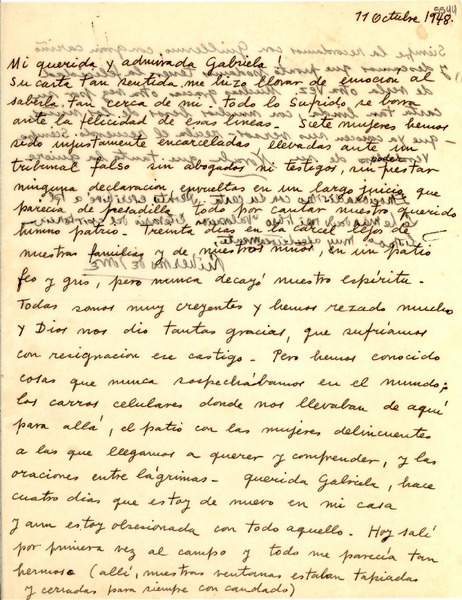 9944
11 Octubre 1948.
Mi querida y admirada Gabriela!
Su carta tan sentida, me hizo llorar de emoción al
saberla tan cerca de mi. Todo lo sufrido, se borra
ante la felicidad de esas lineas. Siete mujeres hemos
sido injustamente encarceladas, llevadas ante un
tribunal falso sin abogados ni testigos, sin poder prestar
ninguna declaración envueltas en un largo juicio que
parecia de pesadilla. Todo por cantar nuestro querido
himno patrio. Treinta dias en la carcel lejos de
nuestras familias y de nuestros niños, en un patio
feo y gris, pero nunca decayó nuestro espíritu.
Todas somos muy creyentes y hemos rezado mucho
y Dios nos dio tantas gracias, que sufríamos
con resignación ese castigo. Pero hemos conocido
cosas que nunca sospechábamos en el mundo;
los carros celulares donde nos llevaban de aquí
para allá, el patio con las mujeres delincuentes
a las que llegamos a querer y comprender, y las
oraciones entre lágrimas. querida Gabriela, hace
cuatro dias que estoy de nuevo en mi casa
y aun estoy obsesionada con todo aquello. Hoy salí
por primera vez al campo y todo me parecía tan
hermoso (allí, nuestras ventanas estaban tapiadas
y cerradas para siempre con candado)